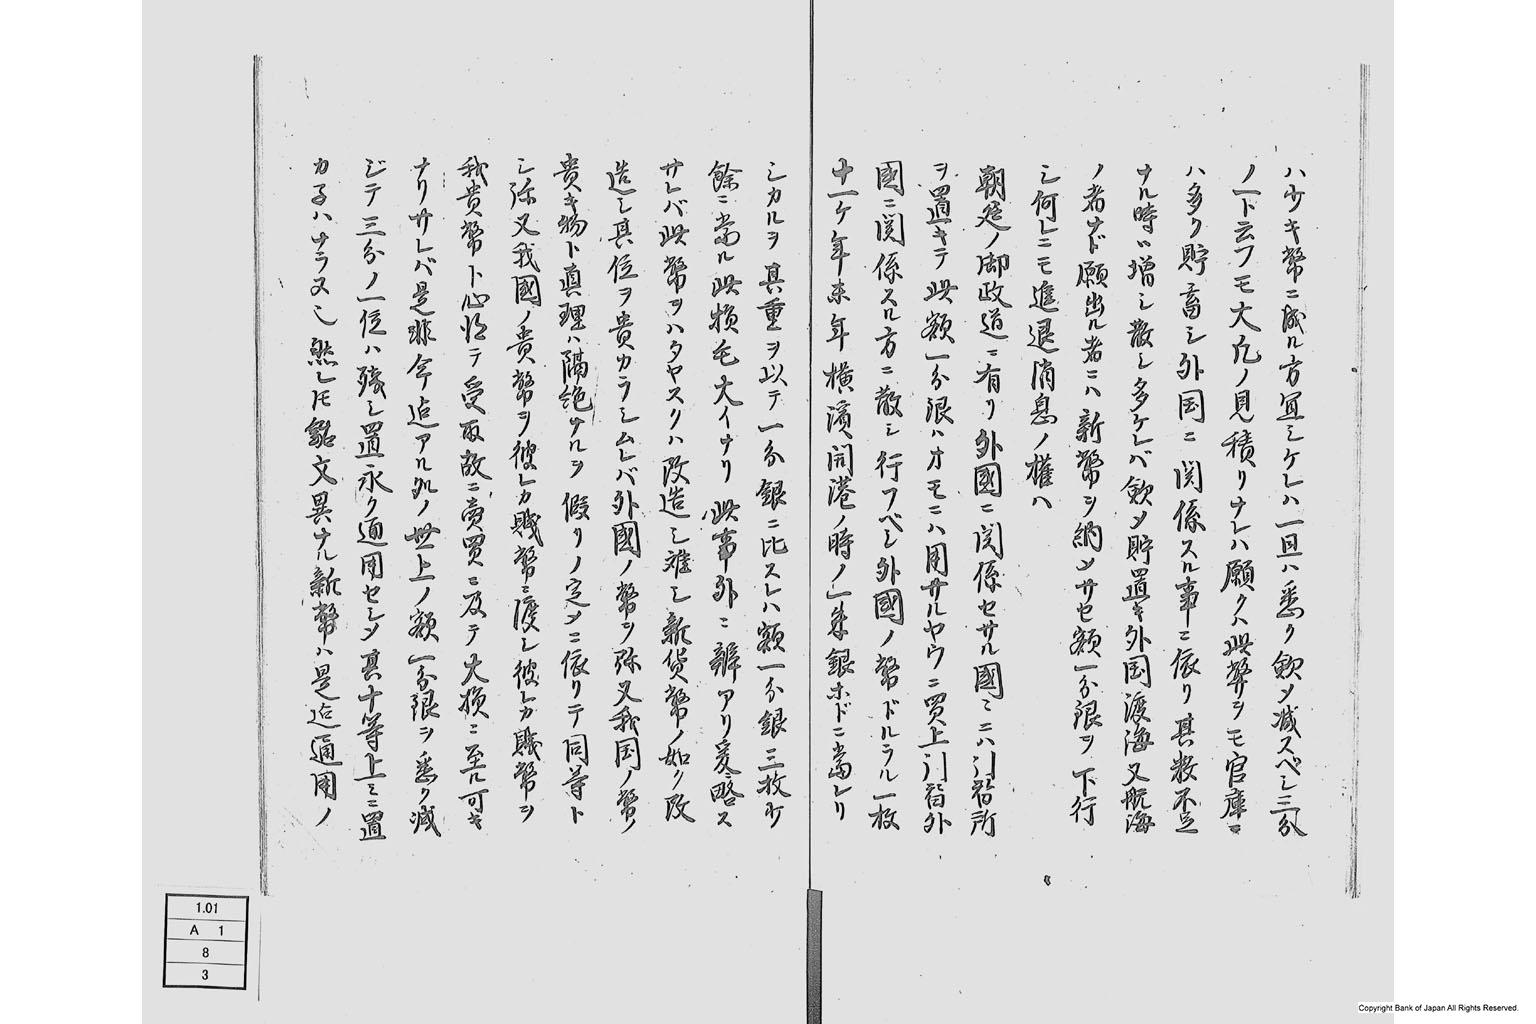 ハ少キ幣ニ成ル方宜シケレハ一旦ハ悉ク歛メ减スベシ三分
ノ一ト云フモ大凡ノ見積リナレハ願クハ此弊ヲモ官庫ニ
ハ多ク貯畜シ外国ニ関係スル事ニ依リ其数不足
ナル時ハ増シ散シ多ケレバ歛メ貯置キ外国渡海又航海
ノ者ナド願出ル者ニハ新幣ヲ納メサセ額一分限ヲ下行
シ何レニモ進退消息ノ権ハ
朝廷ノ御政道ニ有リ外國ニ関係セサル國ミニハ引替所
ヲ置キテ此額一分限ハオモニハ用サルヤウニ買上引替外
國ニ関係スル方ニ散シ行フベシ外國ノ幣ドルラル一枚
十一ケ年未年横濱開港ノ時ノ一朱銀ホドニ當レリ
シカルヲ其重ヲ以テ一分銀ニ比スレハ額一分銀三枚少
餘ニ當ル此損毛大イナリ此事外ニ辨アリ爰略ス
サレバ此幣ヲハタヤスクハ改造シ難シ新貨幣ノ如ク改
造シ其位ヲ貴カラシムレバ外國ノ幣ヲ弥又我国ノ幣ノ
貴キ物ト真理ハ隔絶ナルヲ假リノ定メニ依リテ同等ト
シ弥又我國ノ貴幣ヲ彼レカ賎幣ニ渡シ彼レカ賎幣ヲ
我貴幣ト心得テ受取故ニ賣買ニ及テ大損ニ至ル可キ
ナリサレバ是非今迠アル処ノ世上ノ額一分限ヲ悉ク减
ジテ三分ノ一位ハ残シ置永ク通用セシメ其十等上ミニ置
カ子ハナラヌ也然レ𪜈銘文異ナル新幣ハ是迠通用ノ
1.01
A 1
8
3
Copyright Bank of Japan All Rights Reserved.